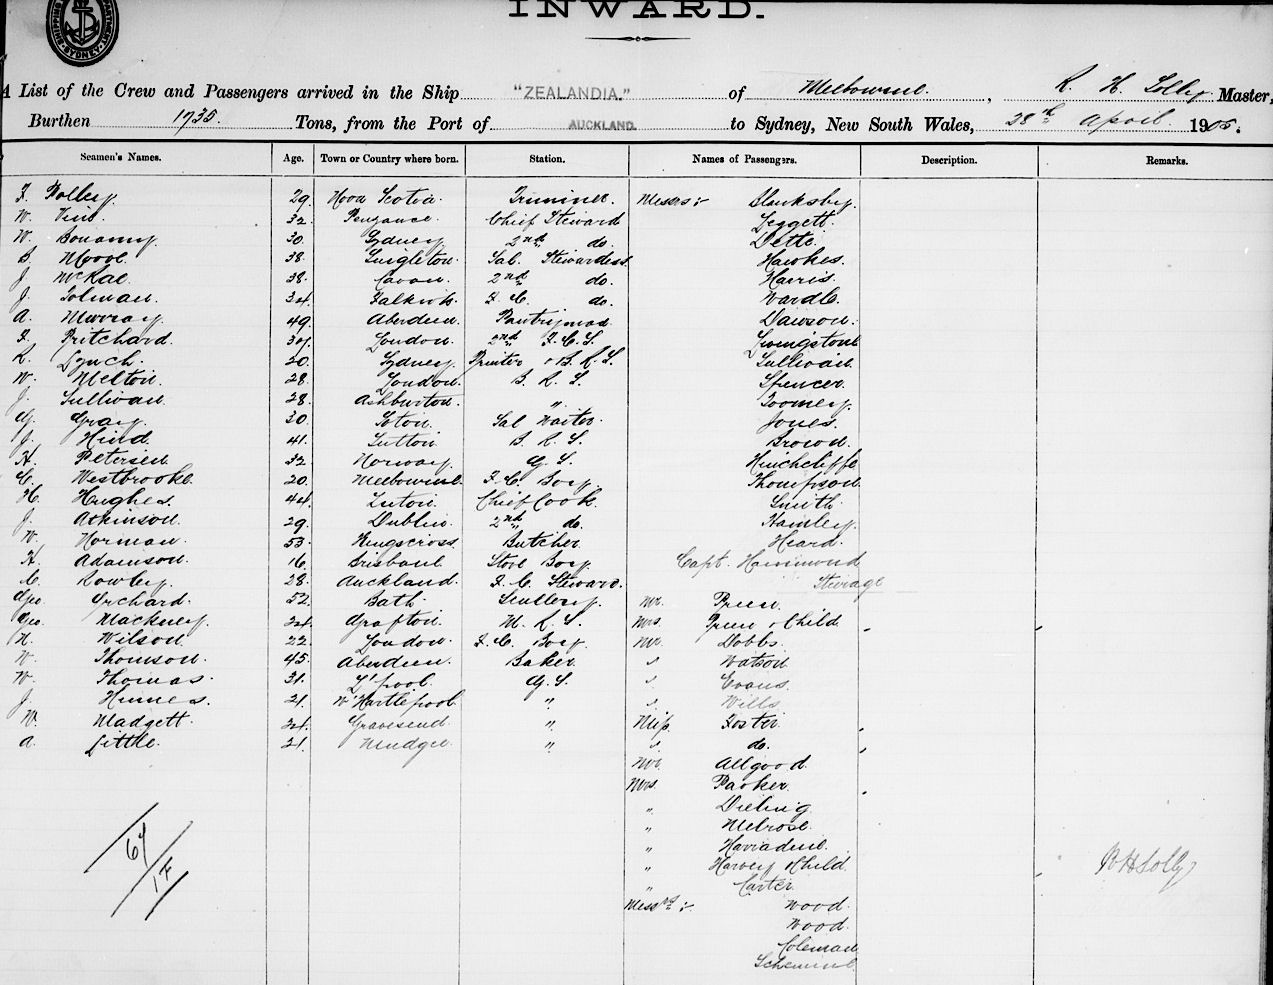 INWARD.
A List of the Crew and Passengers arrived in the Ship "ZEALANDIA." of Melbourne, R. H. Lolly Master,
Burthen 1735 Tons, from the Port of AUCKLAND. to Sydney, New South Wales, 28th April 1905.
Seamen's Names. Age. Town or Country where born. Station. Names of Passengers. Description. Remarks.
F. Polley. 29. Nova Scotia. Trimmer. Messrs:- Slanksby.
W. 32. Penzance. Chief Steward Leggett.
W. Bonamy. 30. Sydney 2nd do.
B. Moore. 38. Singleton. Sal. Stewardess Hawkes.
J. McRae. 38. Cavan. 2nd do. Harris
J. Tolman. 34. Falkirk. F. C. do. Wardle.
A. Murray. 49. Aberdeen. Pantryman Dawson.
F. Pritchard. London. 2nd F.C.S. Livingstone
R. Lynch. 20. Sydney. Printer & B.R.S. Sullivan.
W. Melton. 28. London. B. R. S. Spencer.
J. Sullivan. 28. Ashburton. " Toomey.
G. Gray. 30. Soton. Sal Waiter. Jones.
J. Hind. 41. Sutton B. R. S. Brown.
H. Petersen 32. Norway. G. S. Hinchcliffe
C. Westbrooke. 20. Melbourne. F.C. Boy. Thompson
H. Hughes. 44. Luton. Chief Cook. Smith.
J. Atkinson. 29. Dublin. 2nd do. Hamley.
W. Norman. 53. Kingscross. Butcher. Heard.
H. Adamson. 16. Brisbane Store Boy. Capt. Hammond
C. Rowley. 28. Auckland. F. C. Steward. Steerage
Geo. Orchard. 52. Bath. Scullery. Mr. Green.
Geo. Mackney. 24. Grafton. M. R. S. Mrs. Green & Child
N. Wilson. 22. London. F. C. Boy. Mr. Dobbs.
W. Thomson. 45. Aberdeen. Baker. " Watson
W. Thomas. 31. L'pool. G. S. " Evans.
J. Hinnes. 21. W' Hartlepool " " Wills
W. Madgett. 24. Gravesend. " Miss. Foster
A. Little. 21. Mudgee. " " do.
Mr Allgood.
Mrs. Parker.
" Dieling
" Melrose.
"
67 " Harvey & Child R H Lolly
1F " Carter
Messrs:- Wood.
Wood.
Coleman